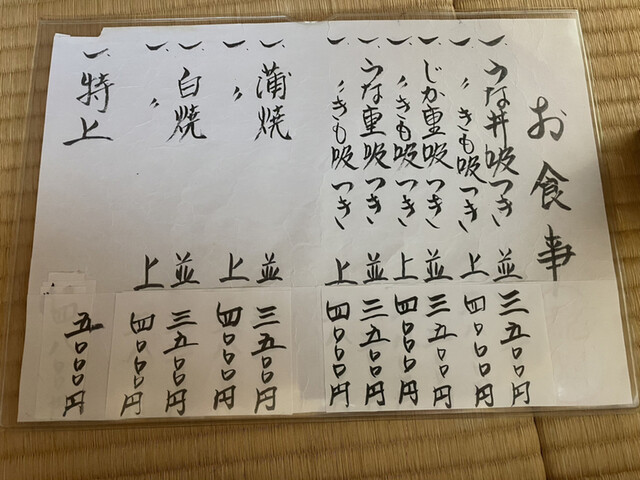 お食事
一、うな丼吸つき 並 三五〇〇円
一、〃きも吸つき 上 四〇〇〇円
一、じか重吸つき 並 三五〇〇円
一、〃きも吸つき 上 四〇〇〇円
一、うな重吸つき 並 三五〇〇円
一、〃きも吸つき 上 四〇〇〇円
一、蒲焼 並 三五〇〇円
一、〃 上 四〇〇〇円
一、白焼 並 三五〇〇円
一、〃 上 四〇〇〇円
一、特上 五〇〇〇円